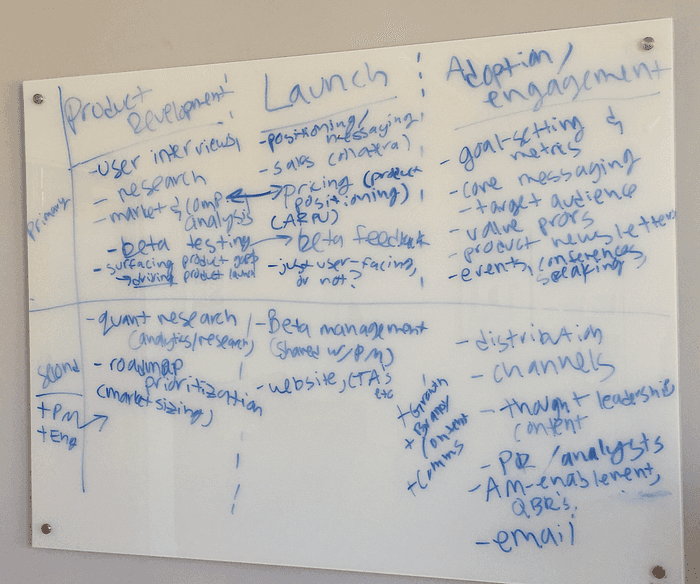 Product
Development
Primary
- user interviews,
- research
- market & comp
analysis
- beta testing
- surfacing product gaps
→ driving product launch
Launch
- positioning/
messaging
- sales collateral
pricing (product
positioning)
(ARPU)
→ beta feedback
- just user-facing,
or not?
Adoption/
engagement
- goal-setting &
metrics
- core messaging
- target audience
- value props
- product newsletters
- events, conferences
speaking
+ PM
+ Eng
- quant research
(analytics/research)
- roadmap
prioritization
(market sizing)
- Beta management
(shared w/ PM)
- website, CTA's
etc
+ Growth
+ Brand
Content
+ Comms
- distribution
- channels
- thought leadership
content
- PR / analysts
- AM-enablement,
QBR's
- email